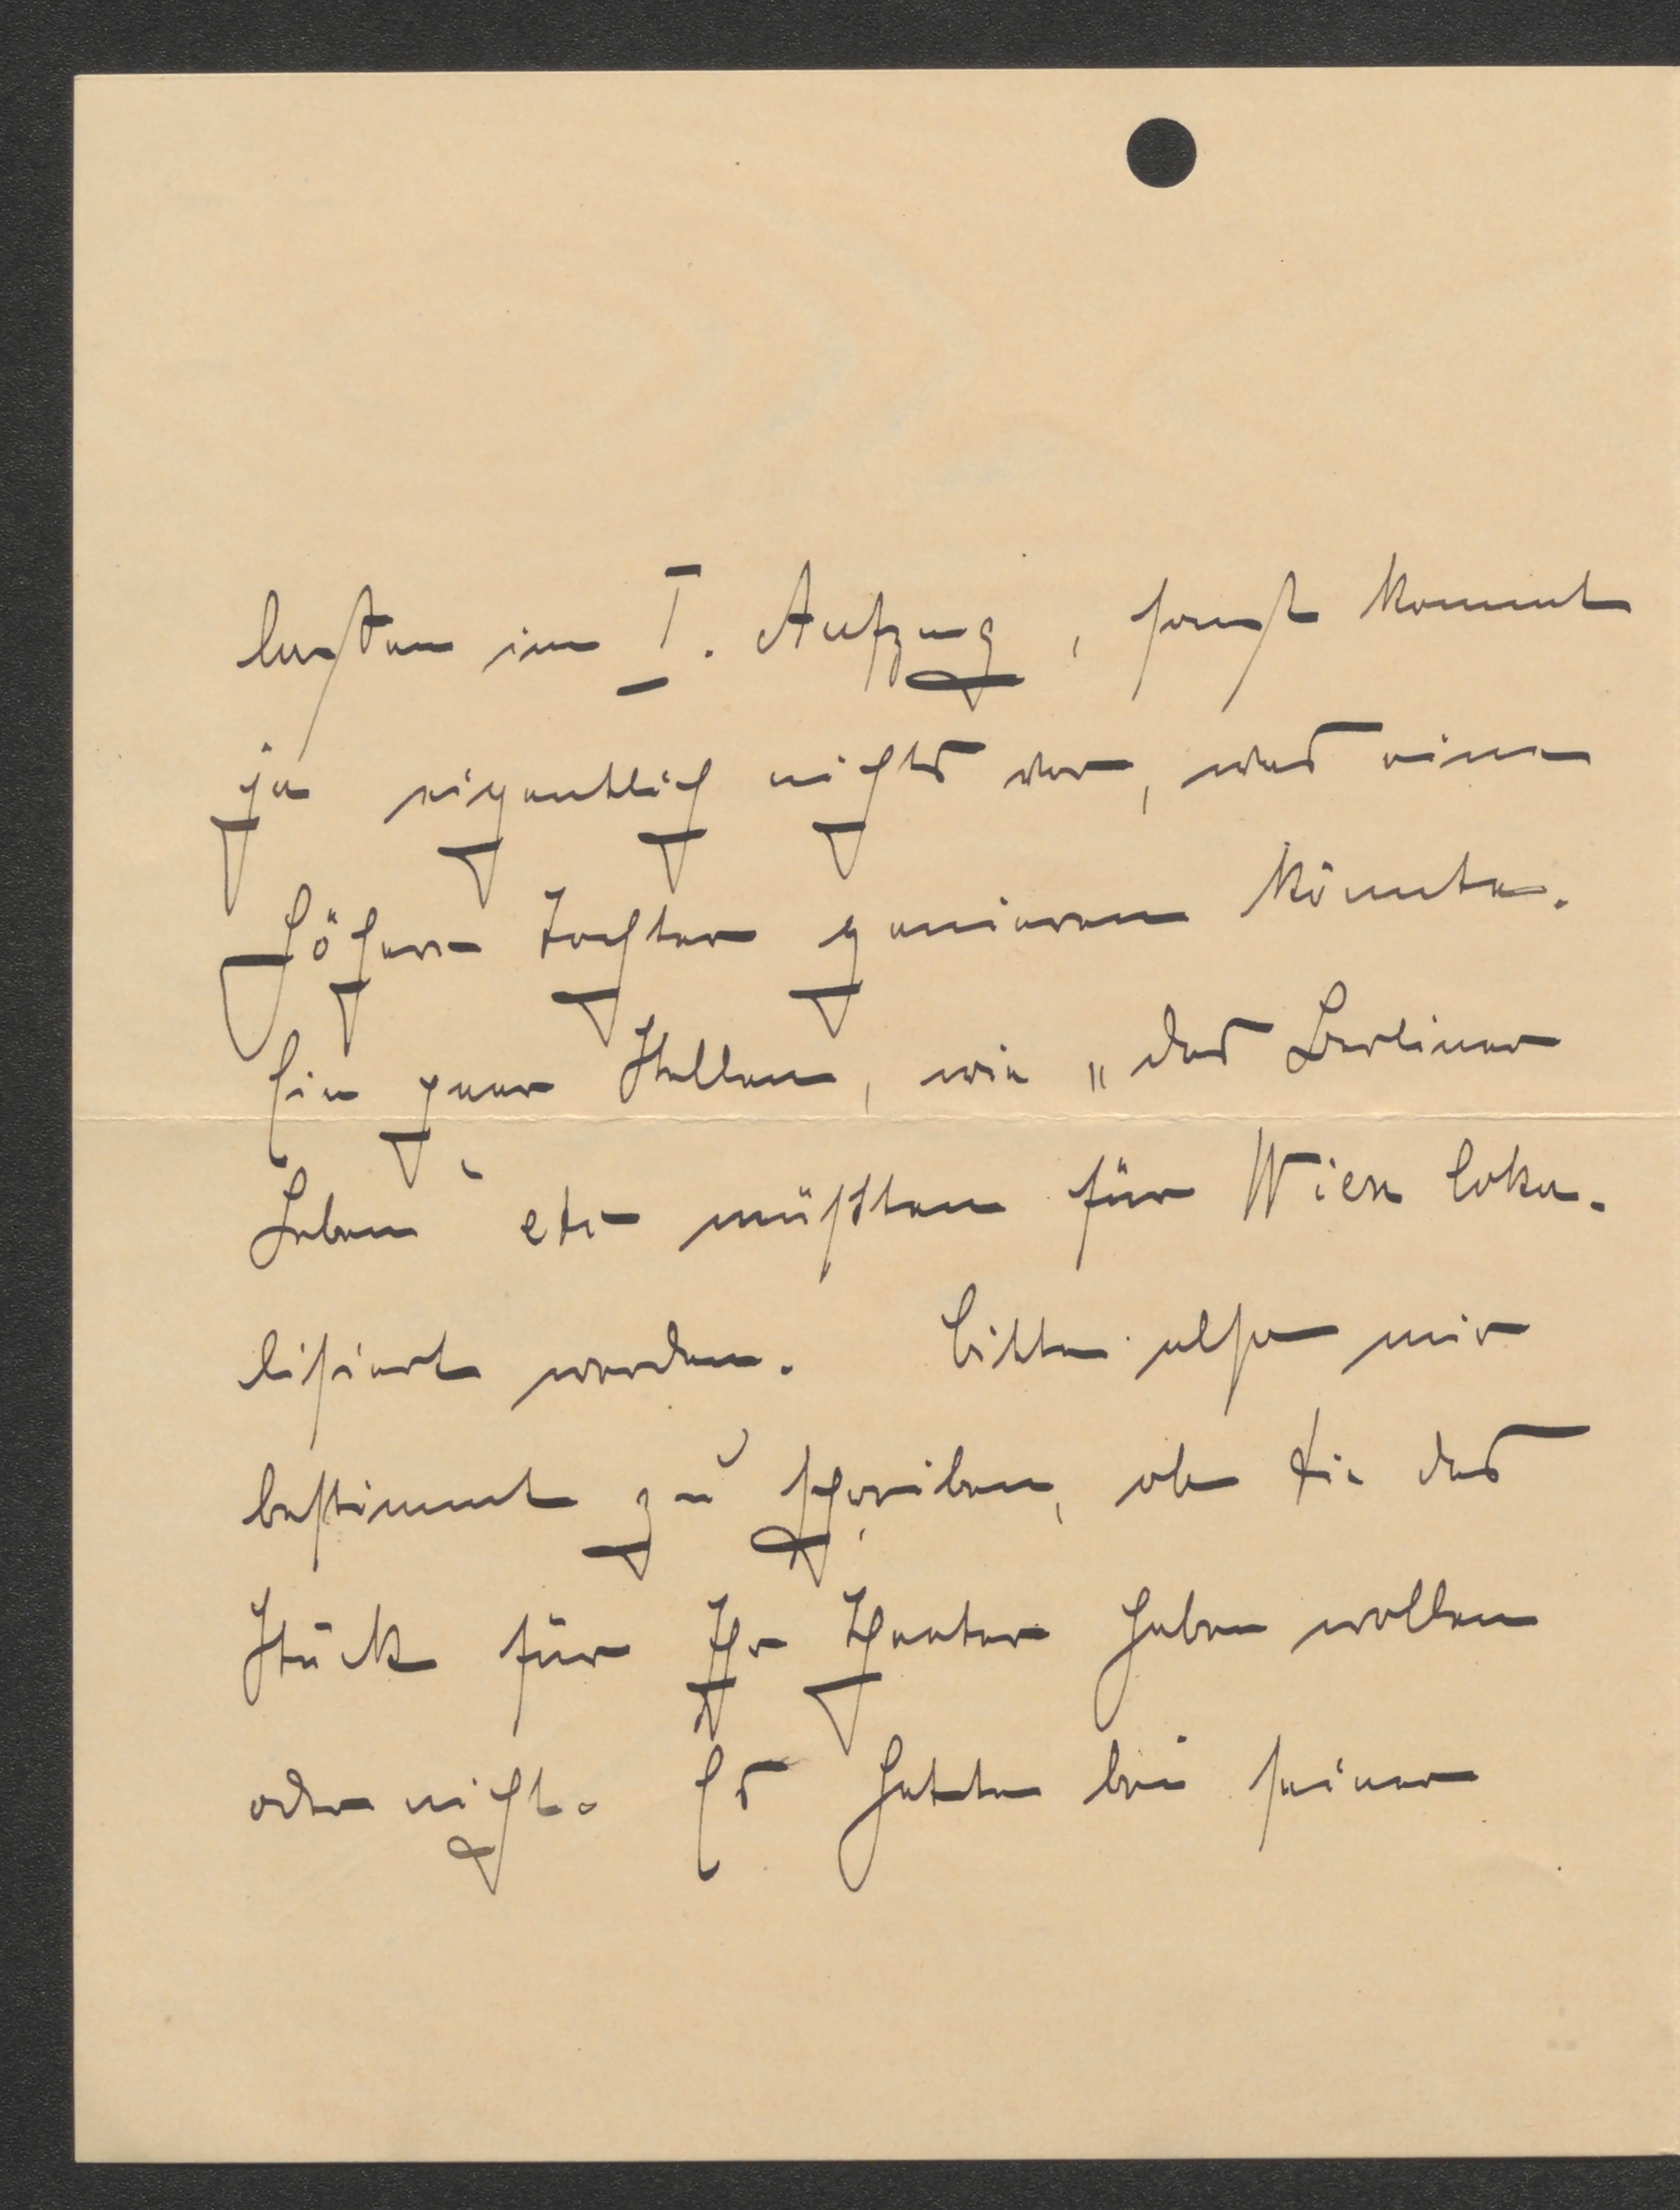 lasten im I. Aufzug, sonst kommt
ja eigentlich nichts vor, was eine
höhere Tochter genieren könnte.
Ein paar Stellen, wie „das Berliner
Leben“ etc müßten für Wien loka-
lisiert werden. Bitte also mir
bestimmt zu schreiben, ob Sie das
Stück für Ihr Theater haben wollen
oder nicht. Es hatte bei seiner